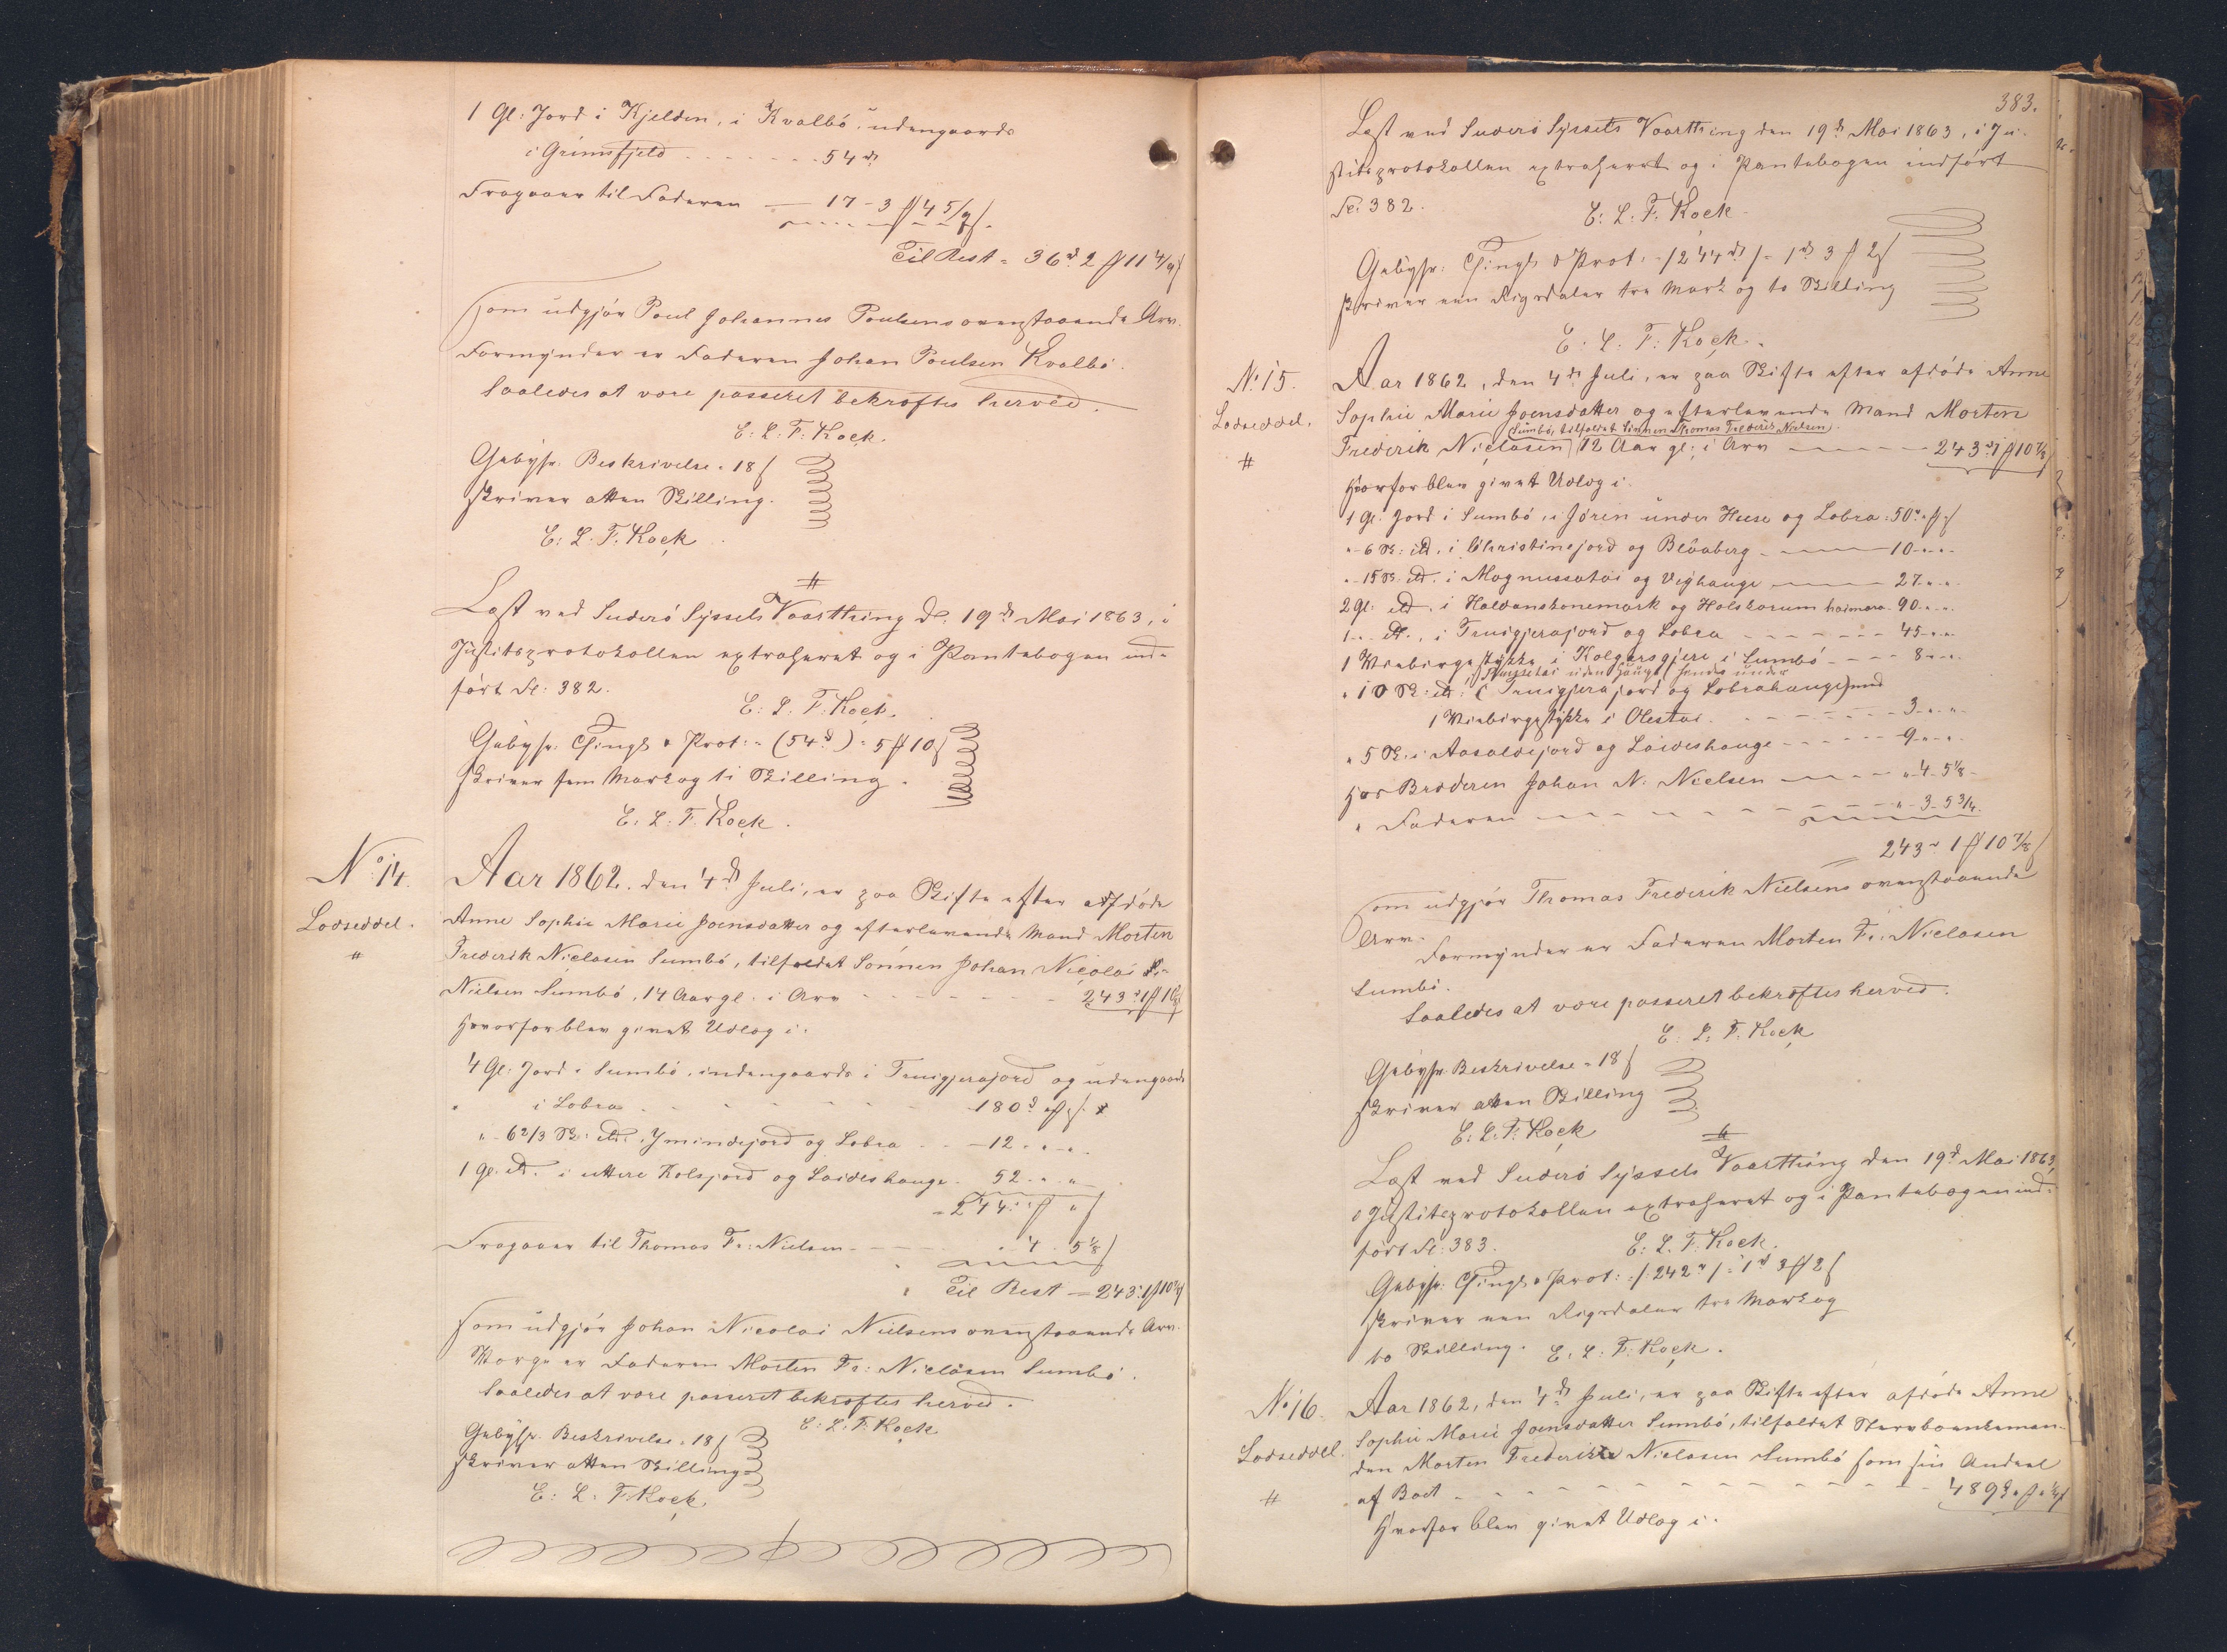 1 Gl: Jord i Kjelden, i Kvalbö, udengaards
i Grimsfjeld - - - - - - - 54 rd
Fragaaer til Faderen — 17 - 3 ℳ 4 5/9 ß.
Til Rest = 36 rd 2 ℳ 11 4/9 ß
som udgjör Poul Johannes Poulsens ovenstaaende Arv.
Formynder er Faderen Johan Poulsen Kvalbö.
Saaledes at være passeret bekræftes herved.
E: L: F: Kock.
Gebyhr. Beskrivelse = 18 ß
skriver atten Skilling.
E: L: F. Kock
#
Læst ved Suderö Syssels Vaarthing d: 19de Mai 1863, i
Justitsprotokollen extraheret og i Pantebogen ind-
fört Fl: 382.
E: L: F: Kock.
Gebyhr. Thingl. & Prot: = (54 rd) = 5 ℳ 10 ß
skriver fem Mark og ti Skilling.
E: L: F. Kock.
No 14.
Lodseddel.
#
Aar 1862. den 4de Juli, er paa Skifte efter afdöde
Anne Sophie Marie Joensdatter og efterlevende Mand Morten
Frederik Niclasen Sumbö, tilfaldet Sönnen Johan Nicolai
Nielsen Sumbö, 14 Aar gl. i Arv - - - - - - 243 rd 1 ℳ
Hvorfor blev givet Udlæg i:
4 Gl: Jord i Sumbö, indengaards i Truigjerajord og udengaards
i Lobra - - - - - - - 180 rd
" - 6 2/3 Sk: itd. Ymindejord og Lobra - - - 12 - " - "
1 Gl. itd. i uttere Kolsjord og Laideshauge - 52 - " - "
= 244 rd " ℳ " ß
Fragaaer til Thomas Fr: Nielsen - - - - " 4 - 5 1/8 ß
Til Rest — 243 rd 1 ℳ 10 7/8 ß
som udgjör Johan Nicolai Nielsens ovenstaaende Arv.
Værge er Faderen Morten Fr: Niclasen Sumbö.
Saaledes at være passeret bekræftes herved.
E: L: F: Kock
Gebyhr. Beskrivelse = 18 ß
skriver atten Skilling
E: L: F. Kock.
383.
Læst ved Suderö Syssels Vaarthing den 19de Mai 1863, i Ju-
stitsprotokollen extraheret og i Pantebogen indfört
Fl: 382.
E: L: F. Kock
Gebyhr: Thingl. & Prot: = /244 rd/ = 1 rd 3 ℳ 2 ß
skriver een Rigsdaler tre Mark og to Skilling
E: L: F: Kock.
No 15.
Lodseddel.
#
Aar 1862, den 4de Juli, er paa Skifte efter afdöde Anne
Sophie Marie Joensdatter og efterlevende Mand Morten
Sumbö, tilfaldet Sönnen Thomas Frederik Nielsen
Frederik Niclasen 12 Aar gl: i Arv - - - - 243 rd 1 ℳ 10 7/8
Hvorfor blev givet Udlæg i:
1 Gl: Jord i Sumbö, i Jören under Huse og Lobra = 50 rd " ℳ " ß
" - 6 Sk: itd. i Christinejord og Blåaberg - - - 10 - " - "
" - 15 Sk. itd. i Magnussatai og Veghauge - - - 27 - " - "
2 Gl: itd. i Haldanskonemark og Holskorum haimara - 90 - " - "
1 - " itd., i Truigjerajord og Lobra - - - - - - 45 - " - "
1 Vinbirgestykke i Kolgersgjere i Sumbö - - - 8 - " - "
uden Hauge hendes under
" 10 Sk: itd: (Truigjerajord og Lobrahauge) med
1 Vinbirgestykke i Olestai - - - - - - - 3 - " - "
" 5 Sk: i Aasaldejord og Laideshauge - - - - - 9 - " - "
Hos Broderen Johan N: Nielsen - - - - - " - 4 - 5 1/8 -
" Faderen - - - - - - - - - " - 3 - 5 3/4 -
243 rd 1 ℳ 10 7/8 ß
som udgjör Thomas Frederik Nielsens ovenstaaende
Arv.
Formynder er Faderen Morten Fr: Niclasen
Sumbö.
Saaledes at være passeret bekræftes herved.
E: L: F: Kock
Gebyhr. Beskrivelse = 18 ß
skriver atten Skilling
E: L: F: Kock
#
Læst ved Suderö Syssels Vaarthing den 19de Mai 1863,
i Justitsprotokollen extraheret og i Pantebogen ind-
fört Fl: 383.
E: L: F: Kock.
Gebyhr: Thingl. & Prot: = /242 rd/ = 1 rd 3 ℳ 2 ß
skriver een Rigsdaler tre Mark og
to Skilling. E: L: F: Kock.
No 16.
Lodseddel.
#
Aar 1862, den 4de Juli, er paa Skifte efter afdöde Anne
Sophie Marie Joensdatter Sumbö, tilfaldet Stervboenkeman-
den Morten Frederik Niclasen Sumbö som sin Andeel
af Boet - - - - - - - - - - 489 rd
Hvorfor blev givet Udlæg i: